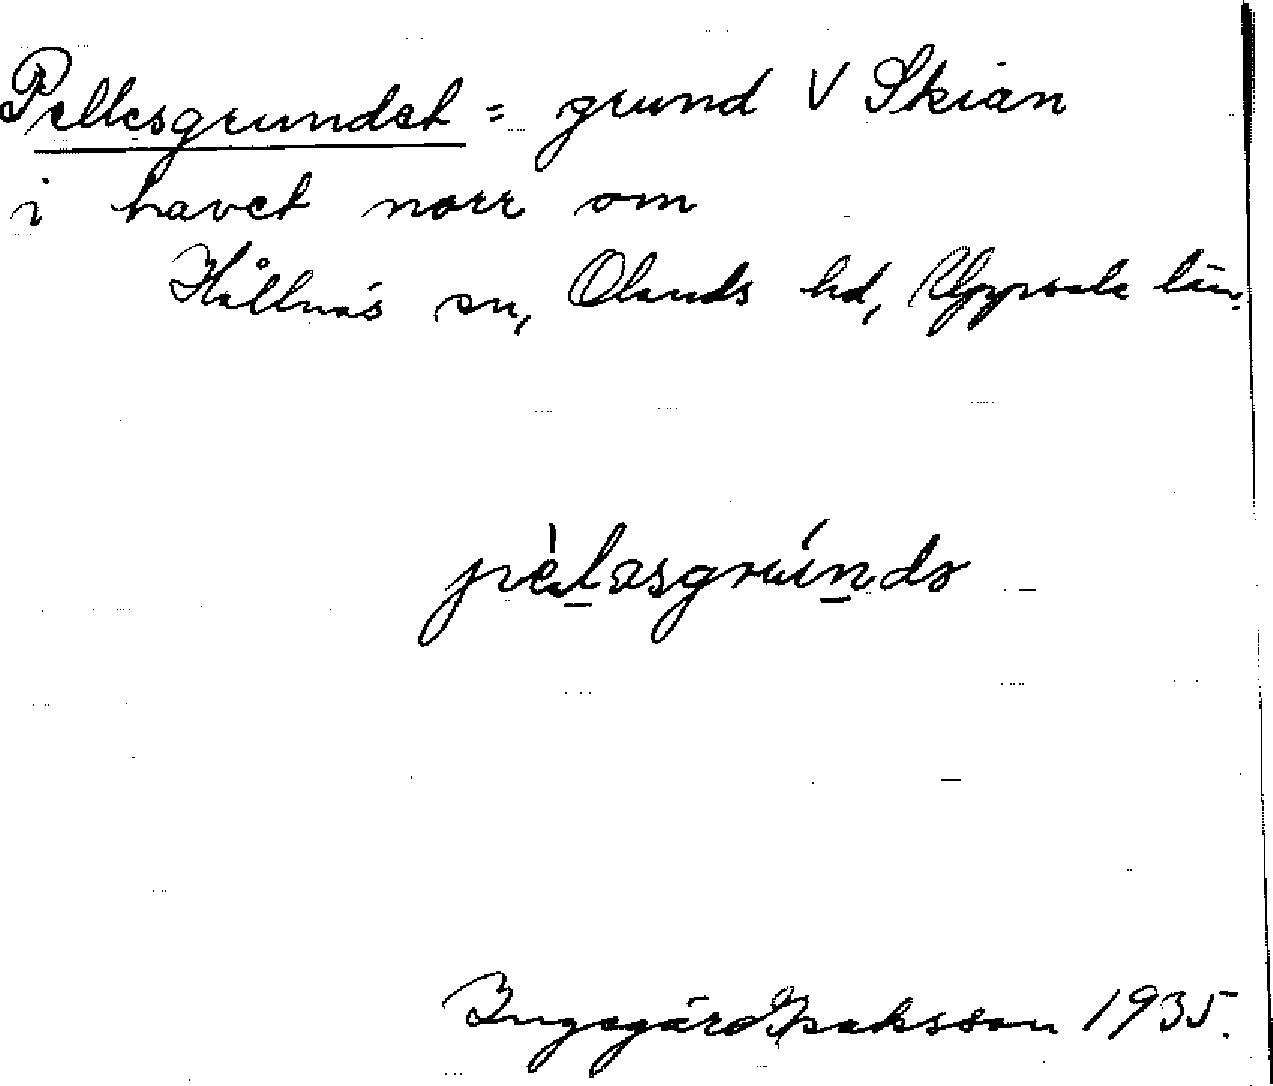 Pellesgrundet = grund V Skian
i havet norr om
Hållnäs sn, Olands hd, Uppsala län.
pèləsgrúndə
Ingegärd Isaksson 1935.